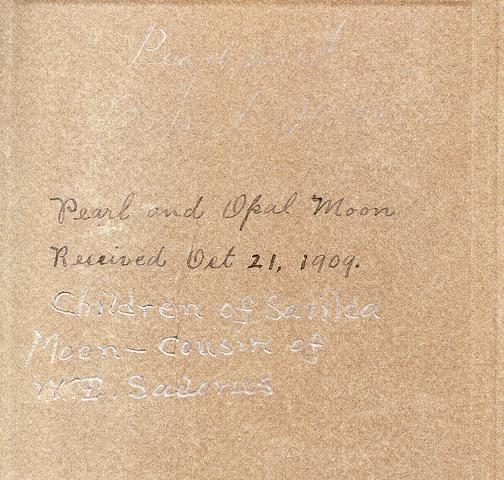 Pearl and
Opal Moon
Pearl and Opal Moon
Received Oct 21, 1909.
Children of Sarilda
Moon - Cousin of
W.E.